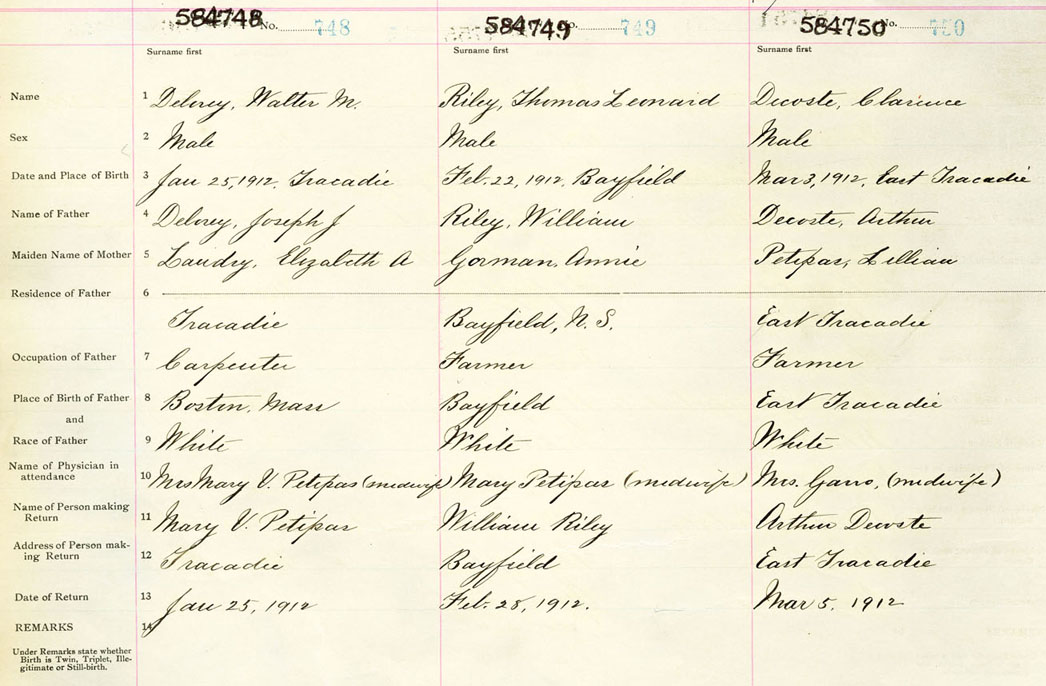 584748 No. 748 584749 No. 749 584750 No. 750
Surname first Surname first Surname first
Name 1 Delorey, Walter M. Riley, Thomas Leonard Decoste, Clarence
Sex 2 Male Male Male
Date and Place of Birth 3 Jan 25, 1912, Tracadie Feb. 22, 1912, Bayfield Mar 3, 1912, East Tracadie
Name of Father 4 Delorey, Joseph J Riley, William Decoste, Arthur
Maiden Name of Mother 5 Landry, Elizabeth A Gorman, Annie Petipas, Lillian
Residence of Father 6
Tracadie Bayfield, N.S. East Tracadie
Occupation of Father 7 Carpenter Farmer Farmer
Place of Birth of Father 8 Boston, Mass Bayfield East Tracadie
and
Race of Father 9 White White White
Name of Physician in
attendance 10 Mrs Mary V. Petipas (midwife) Mary Petipas (midwife) Mrs. Garro, (midwife)
Name of Person making
Return 11 Mary V. Petipas William Riley Arthur Decoste
Address of Person mak-
ing Return 12 Tracadie Bayfield East Tracadie
Date of Return 13 Jan 25, 1912 Feb. 28, 1912. Mar 5, 1912
REMARKS 14
Under Remarks state whether
Birth is Twin, Triplet, Ille-
gitimate or Still-birth.